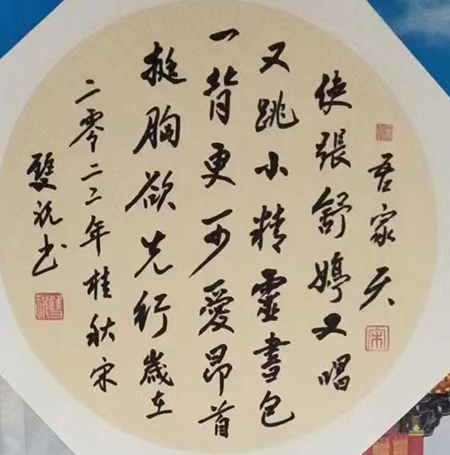 吾家天
使張舒婷又唱
又跳小精靈書包
一背更可愛昂首
挺胸欲先行歲在
二零二二年桂秋宋
雙祝书
宋